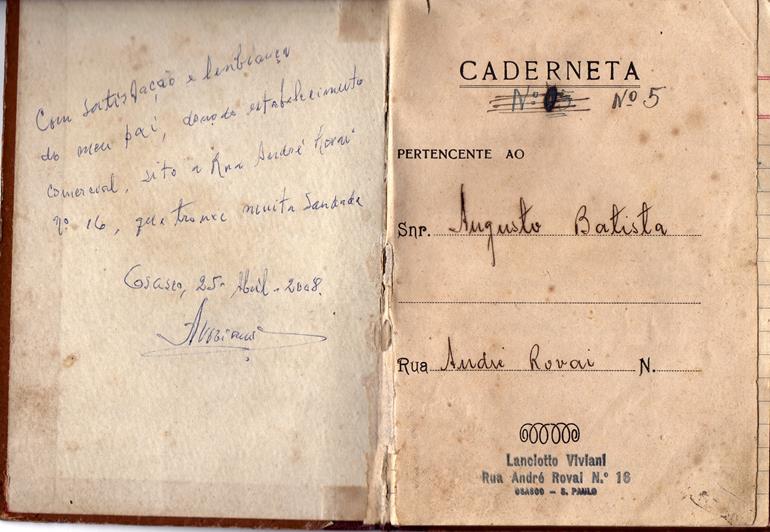 Com satisfação e lembrança
do meu pai, dono do estabelecimento
comercial, sito a Rua André Rovai
nº 16, que trouxe muita saudade
Osasco, 25 Abril - 2008.
CADERNETA
Nº 5
PERTENCENTE AO
Snr. Augusto Batista
Rua André Rovai N.
Lanciotto Viviani
Rua André Rovai N.º 16
OSASCO - S. PAULO